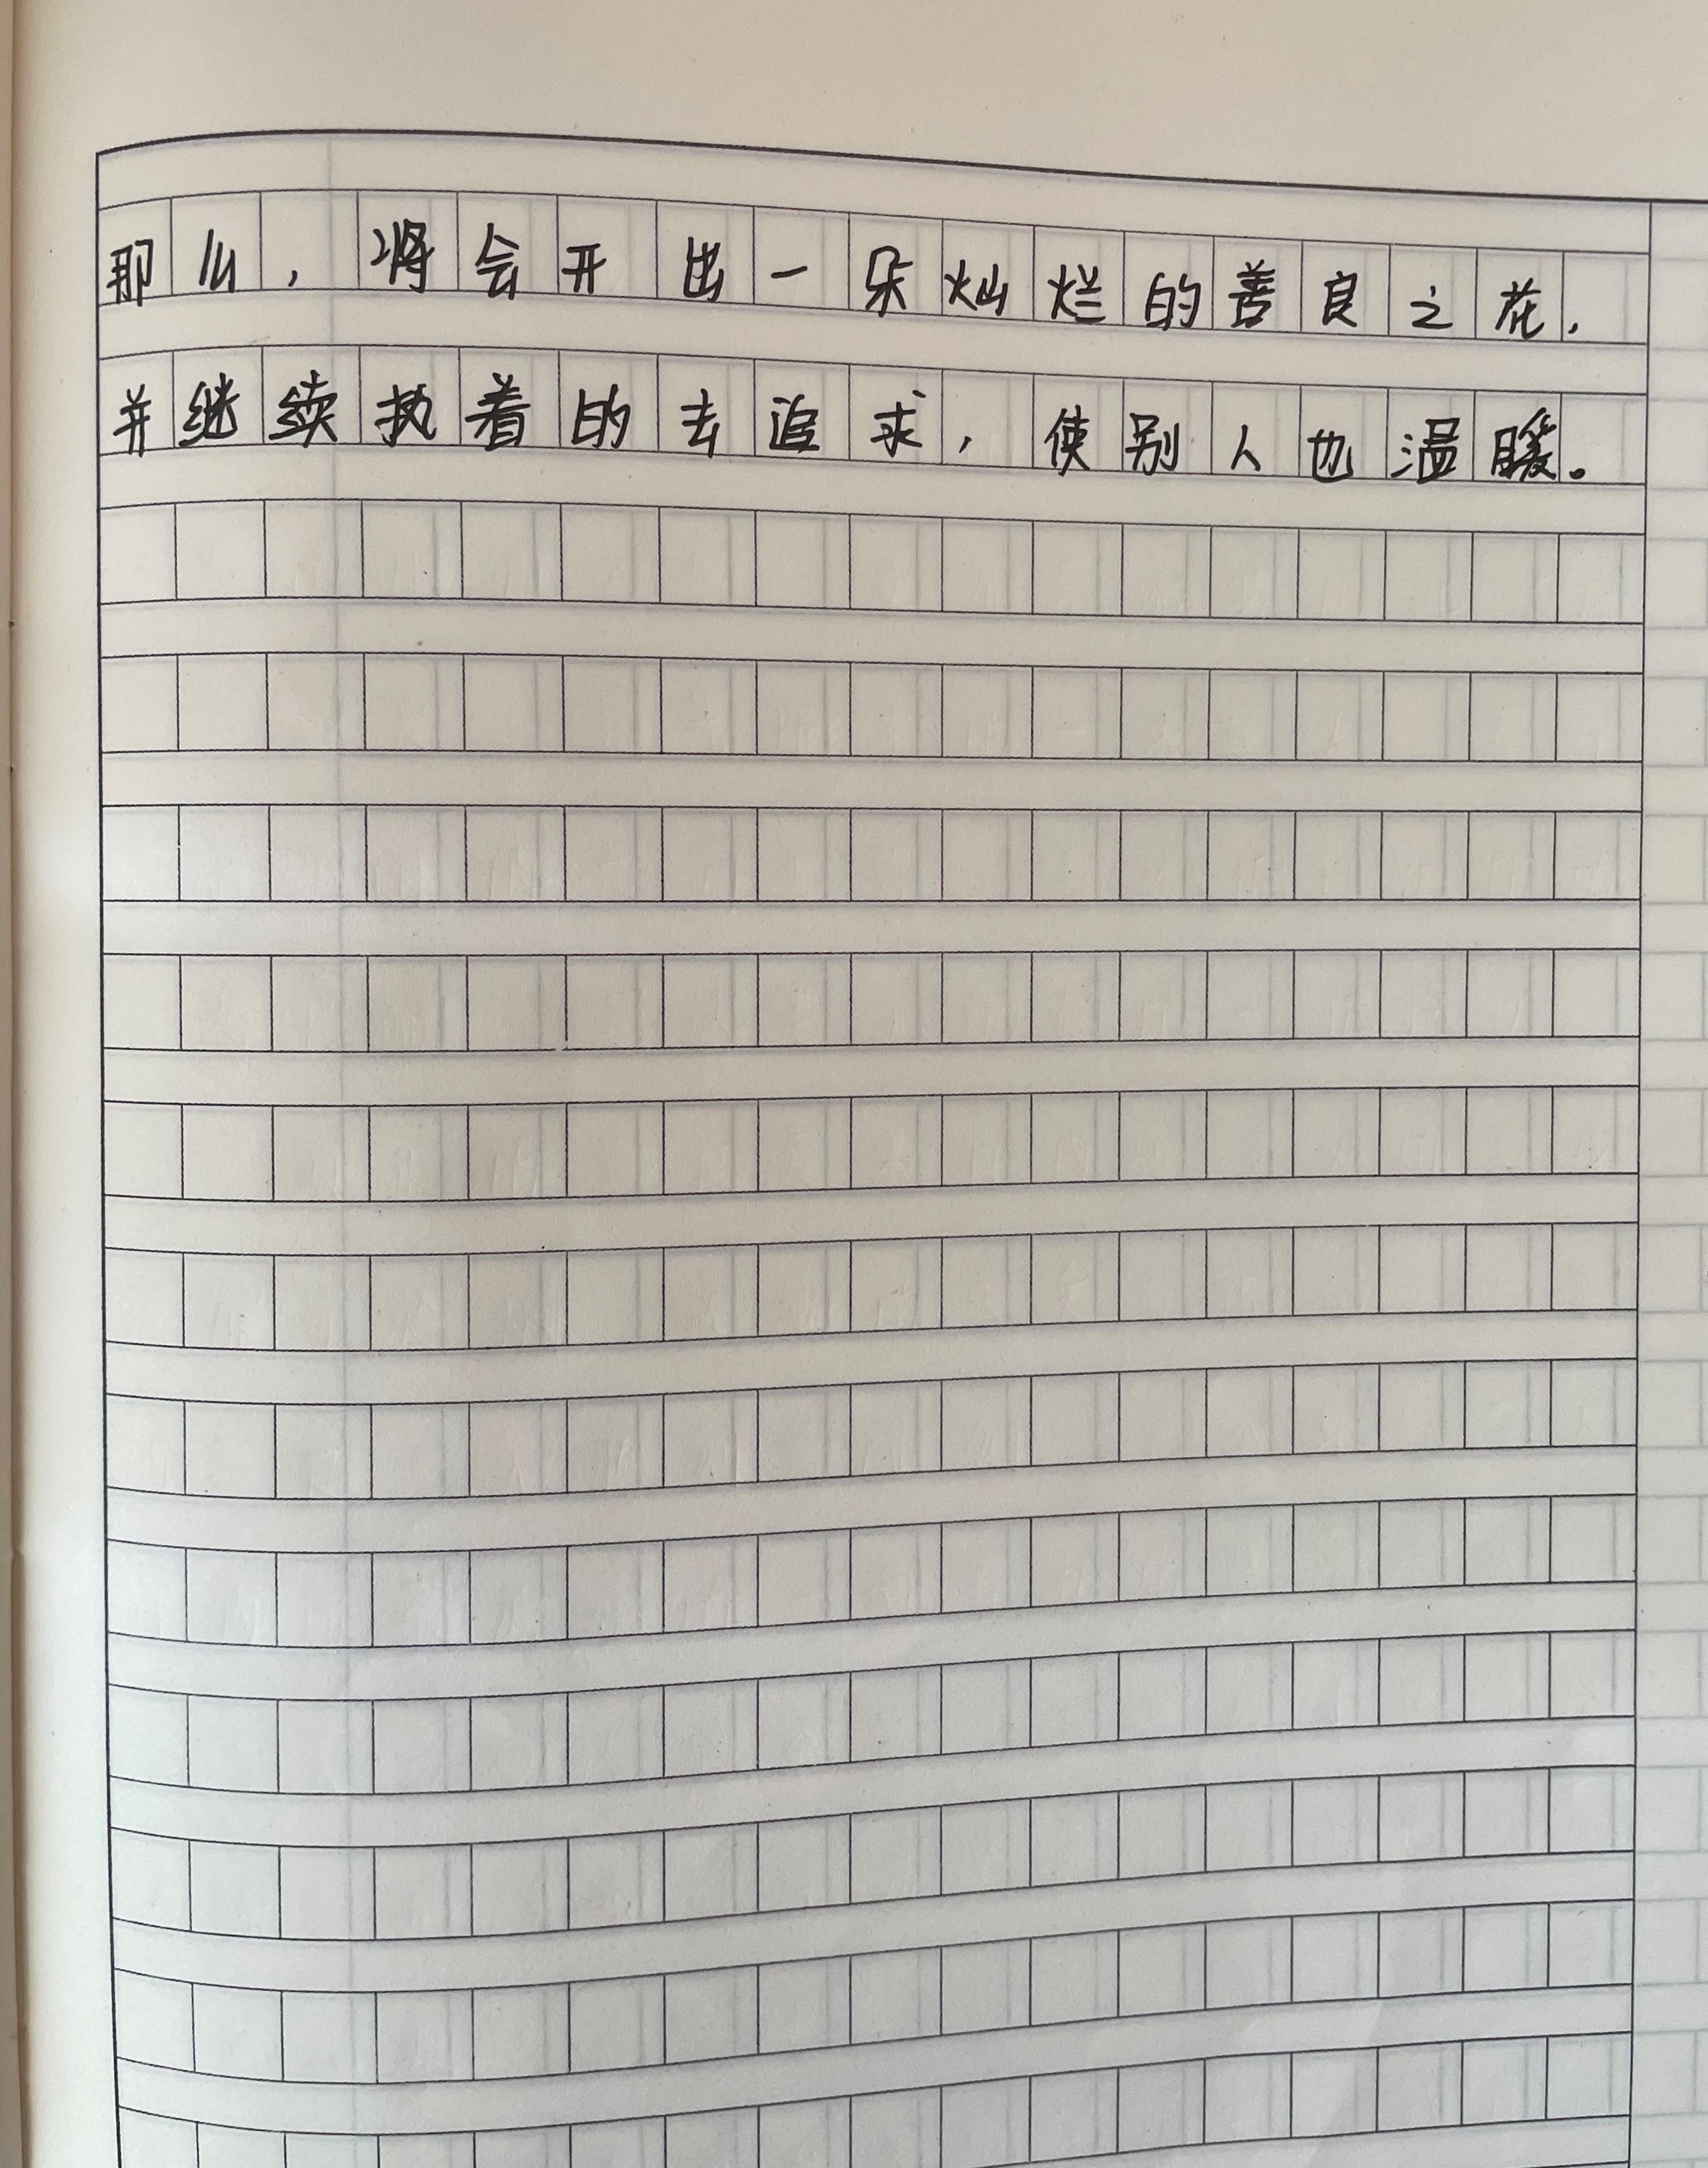 那么，将会开出一朵灿烂的善良之花，
并继续执着的去追求，使别人也温暖。